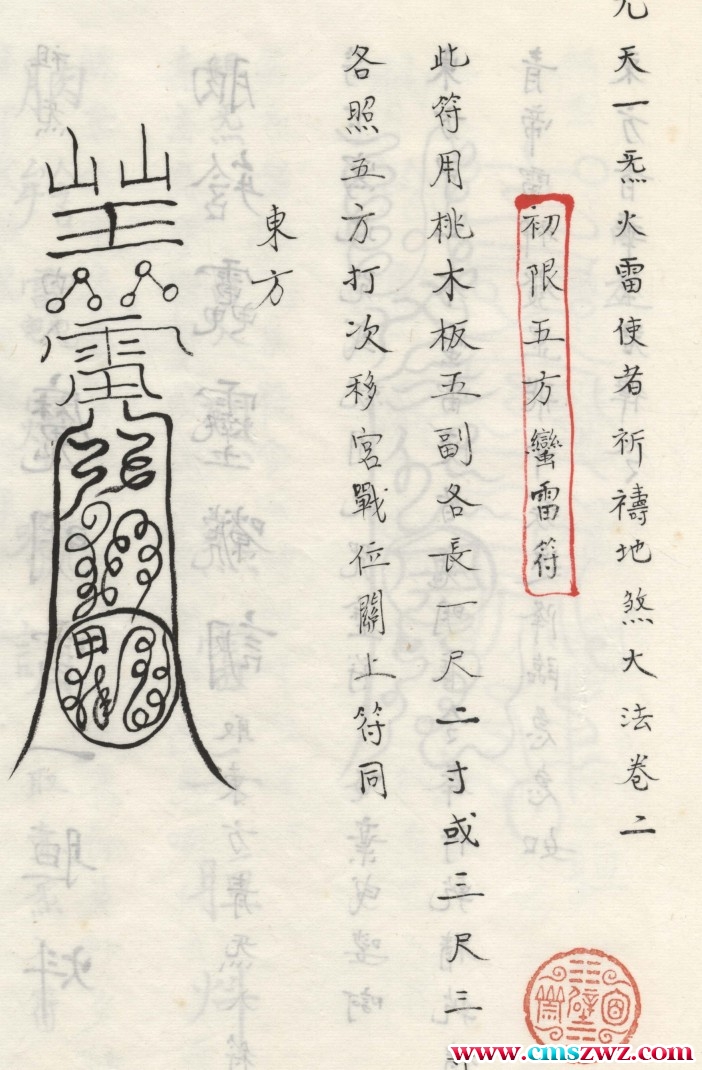 天一炁火雷使者祈禱地煞大法卷二
初限五方蠻雷符
此符用桃木板五副各長一尺二寸或三尺三
各照五方打次移宮戰位關上符同
東方
www.cmszwz.com